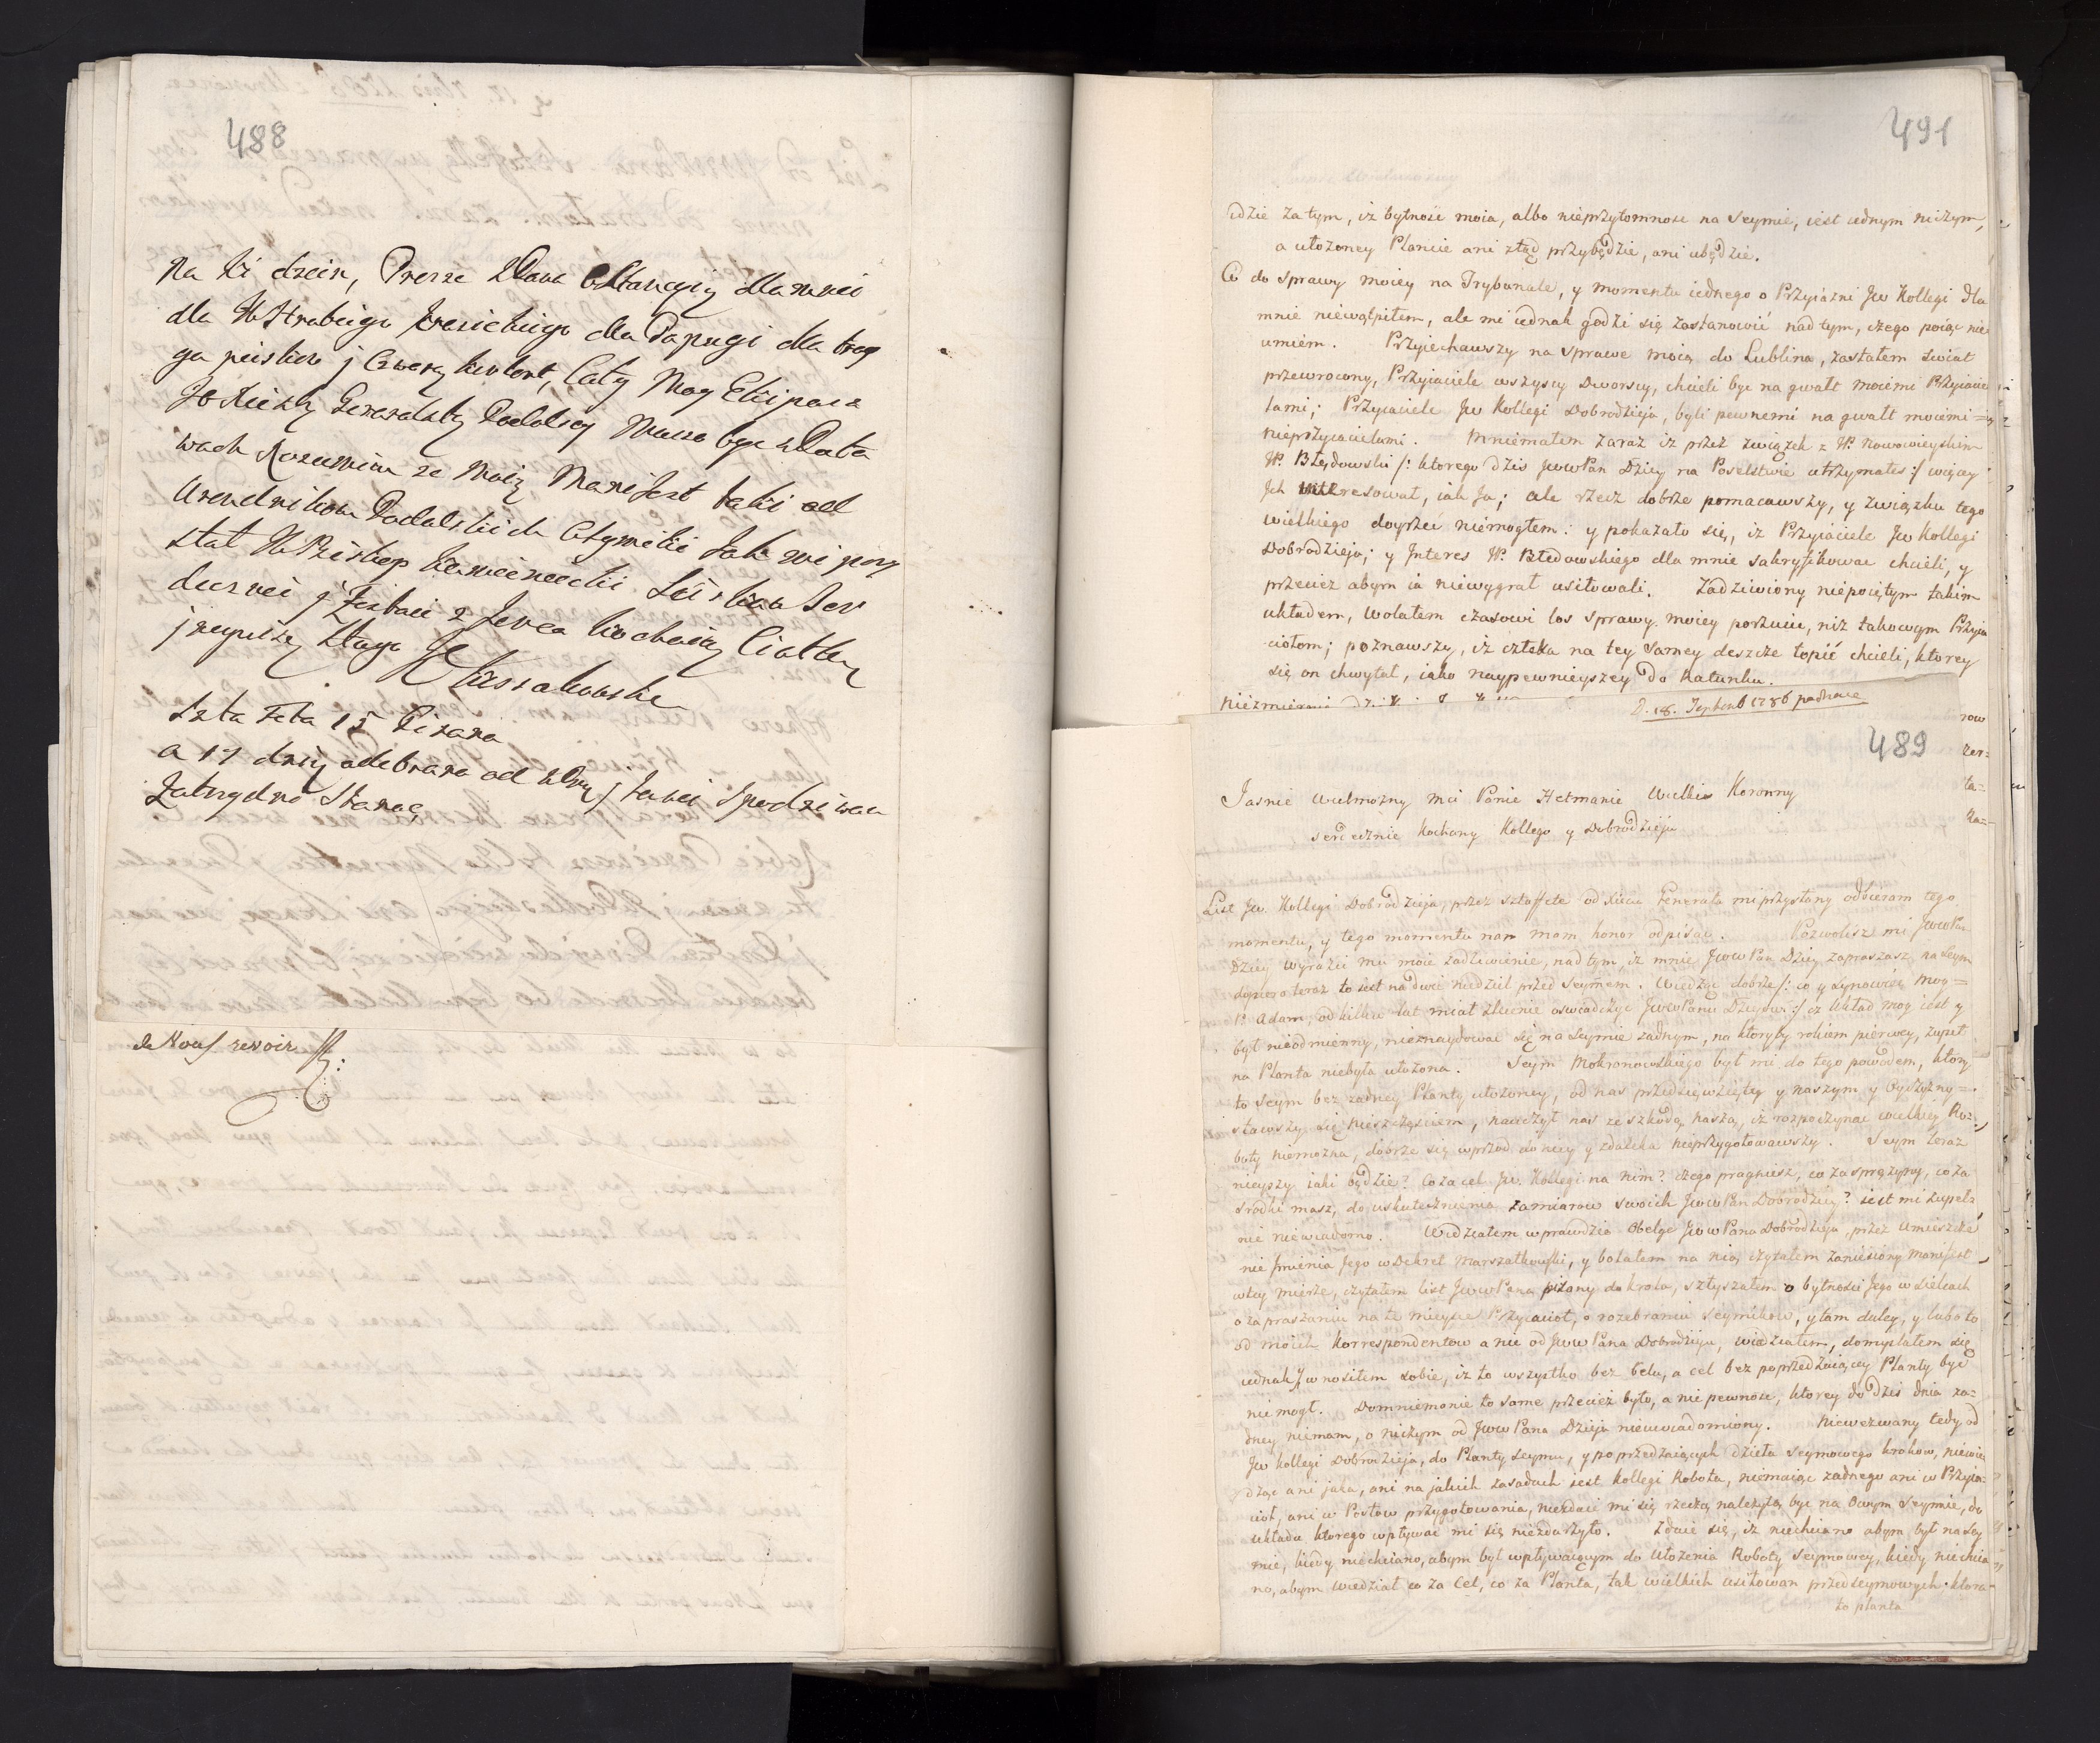 488
Na ti dzein, Prosze WPana o Stancyią dla mnei
dla W Hrabeigo Krasickiego dla Papugi dla trzy
ga peiskow j Czwarty kwlont, Caty Moy Ekipaz
Jo Xiezny Generalsty Podolscy Musza byc
wach Rozumiem ze Moiz Manifest taki od
Urendnikow Podolskich Jak mi pow
stal W Biskop Kameineecki
durnei j Jestem z Serca kochaiący
j neyniszy Sluga
Kossakowska
Szta Feta 15 Pisana
a 17 odebrana od
Zatrzydni Stanąc
de Nous revoir
491
Jdzie zatym, iż bytność moia, albo nieprzytomność na Seymie, iest iednym niczym,
a ułożoney Plancie ani ztąd przybędzie, ani ubędzie.
Co do Sprawy moiey na Trybunale, y momentu iednego o Przyiaźni Jw Kollegi dla
mnie niewątpiłem, ale mi iednak godzi się zastanowić nad tym, czego poiąc nie
umiem. Przyiechawszy na Sprawe moią do Lublina, zastałem swiat
przewrocony, Przyiaciele wszyscy Dworscy, chcieli byc na gwałt moiemi Przyiacie
lami; Przyiaciele Jw Kollegi Dobrodzieja, byli pewnemi na gwałt moiemi
Nieprzyiacielami. Mniemałem zaraz iż przez związek z W. Nowowieyskim
W. Błędowski /: ktorego dzis JwWPan Dziey na Poselstwie utrzymałes :/ więcey
Jch interesował, iak Ja; ale rzecz dobrze pomacawszy, y związku tego
wielkiego doyrzeć niemogłem: y pokazało się, iż Przyiaciele Jw Kollegi
Dobrodzieja; y Jnteres W. Błedowskiego dla mnie sakryfikowac chcieli, y
przeciez abym ia niewygrał usiłowali. Zadziwiony niepoiętym takim
układem, wolałem czasowi los sprawy moiey porzucić, niz takowym Przyja
ciołom; poznawszy, iż człeka na tey samey deszcze topić chcieli, ktorey
się on chwytał, iako naypewnieyszey do Ratunku.
D. 18. Septemb 1786
489
Jasnie Wielmozny Mci Panie Hetmanie Wielki Koronny
serdecznie kochany Kollego y Dobrodzieju
List Jw. Kollegi Dobrodzieja, przez sztaffete od Xiecia Generała mi przysłany odbieram tego
momentu, y tego momentu nan mam honor odpisac. Pozwolisz mi JwwPan
Dziey wyrazić mu moie zadziwienie, nad tym, iż mnie JwwPan Dziey zapraszasz na Seym
dopiero teraz to iest na dwie niedziel przed Seymem. Wiedząc dobrze /: co y Synowiec moy
P. Adam, od kilku lat miał zlecenie oswiadczyc JwwPanu Dziejowi :/ iż układ moy iest y
był nieodmienny, nieznaydować się na Seymie żadnym, na ktoryby rokiem pierwey, zupeł
na Planta niebyła ułożona. Seym Mokronowskiego był mi do tego powodem, ktory
to Seym bez zadney Planty ułożoney, od nas przedsięwzięty y naszym y Oyczyzny
stawszy się nieszczęściem, nauczył nas ze szkodą naszą, iż rozpoczynac wielkiey Ro
boty niemożna, dobrze się wprzod do niey y zdaleka nieprzygotowawszy. Seym teraz
nieyszy iaki będzie? Co za cel Jw. Kollegi na nim? czego pragniesz, co za sprężyny, co za
srodki masz, do uskutecznienia zamiarow swoich JwwPan Dobrodziey? iest mi zupeł
nie niewiadomo. Widziałem wprawdzie Obelge JwwPana Dobrodzieja, przez umieszcze
nie Jmienia Jego w Dekret Marszałkowski, y bolałem na nią, czytałem zaniesiony Manifest
w tey mierze, czytałem list JwwPana pisany do krola, słyszałem o bytności Jego w Sielcach
o zapraszaniu na te mieysce Przyiacioł, o rozebraniu Seymikow, y tam daley, y lubo to
od moich Korrespondentow a nie od JwwPana Dobrodzieja, wiedziałem, domyslałem się
iednak y wnosiłem sobie, iż to wszystko bez Celu, a cel bez poprzedzaiącey Planty byc
nie mogł. Domniemanie to same przecież było, a nie pewność, ktorey do dzis dnia ża
dney niemam, o niczym od JwwPana Dzieja nieuwiadomiony. Niewezwany tedy od
Jw Kollegi Dobrodzieja, do Planty Seymu, y poprzedzaiących dzieła Seymowego krokow, niewie
dząc ani jaka, ani na jakich zasadach iest Kollegi Robota, niemaiąc zadnego ani w Przyia
cioł, ani w Posłow przygotowania, niezdaie mi się rzeczą należytą byc na owym Seymie, do
układu ktorego wpływać mi się niezdarzyło. Zdaie się, iż niechciano abym był na Sey
mie, kiedy niechciano, abym był wpływaiącym do ułożenia Roboty Seymowey, kiedy niechcia
no, abym wiedział co za Cel, co za Planta, tak wielkich usiłowan przedseymowych. ktora
to planta